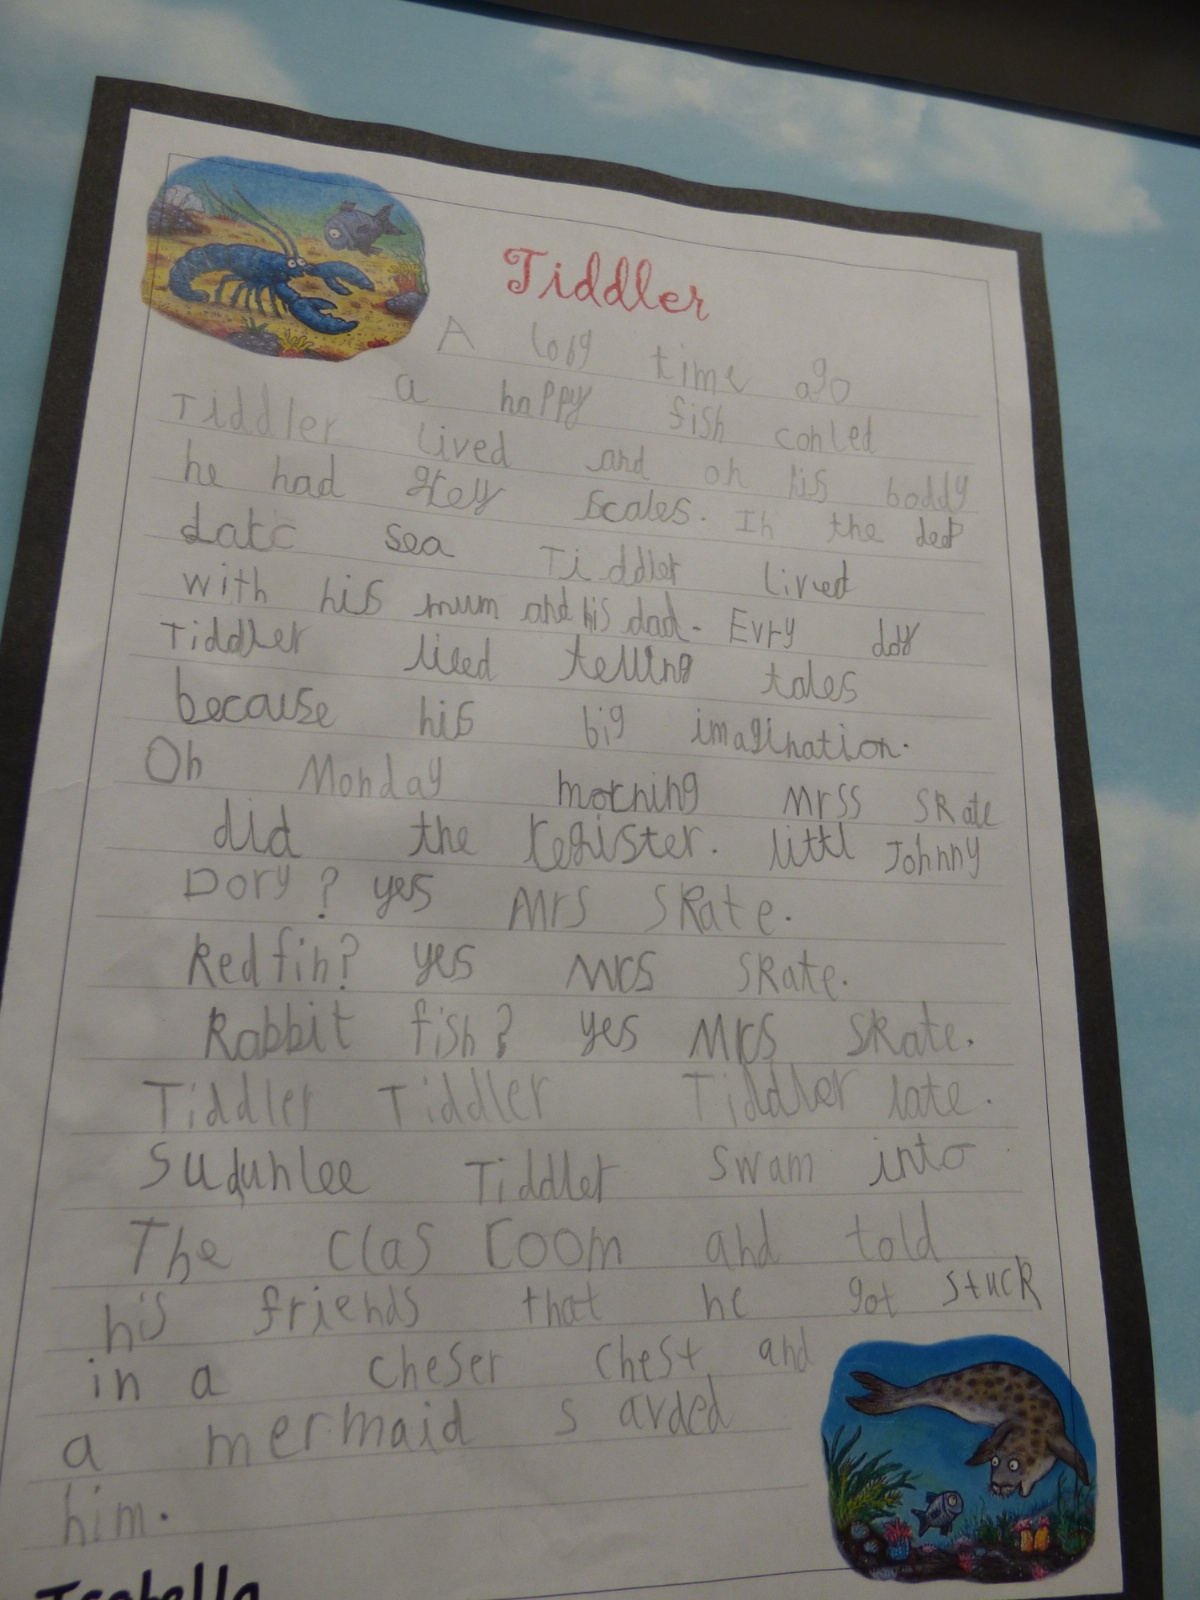 Tiddler
A long time ago
a happy fish conled
Tiddler lived and on his boddy
he had grey scales. In the deep
darc sea Tiddler lived
with his mum and his dad. Evry day
Tiddler liced telling tales
because his big imagination.
On Monday morning Mrss Skate
did the register. littl Johnny
Dory? yes Mrs Skate.
Red fin? yes Mrs Skate.
Rabbit fish? yes Mrs Skate.
Tiddler Tiddler Tiddler late.
Sudunlee Tiddler swam into
The clas room and told
his friends that he got stuck
in a cheser chest and
a mermaid s arded
him.
Isabella